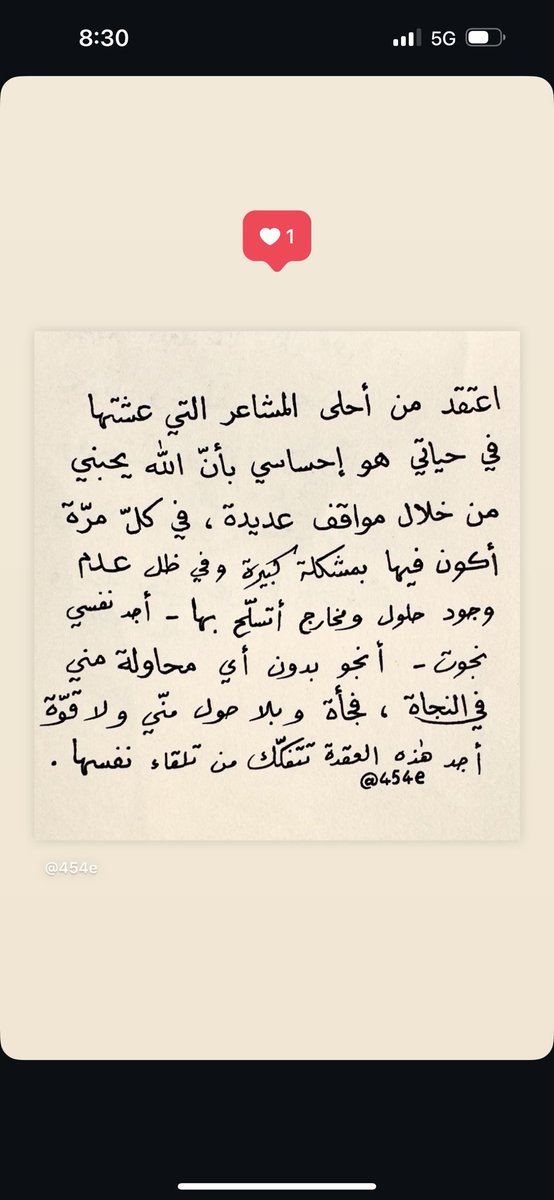 8:30
5G
1
اعتقد من أحلى المشاعر التي عشتها
في حياتي هو إحساسي بأنّ الله يحبني
من خلال مواقف عديدة ، في كلّ مرّة
أكون فيها بمشكلة كبيرة وفي ظل عدم
وجود حلول ومخارج أتسلّح بها - أجد نفسي
نجوت - أنجو بدون أي محاولة مني
في النجاة ، فجأة وبلا حول منّي ولا قوّة
أجد هٰذه العقدة تتفكّك من تلقاء نفسها .
@454e
@454e